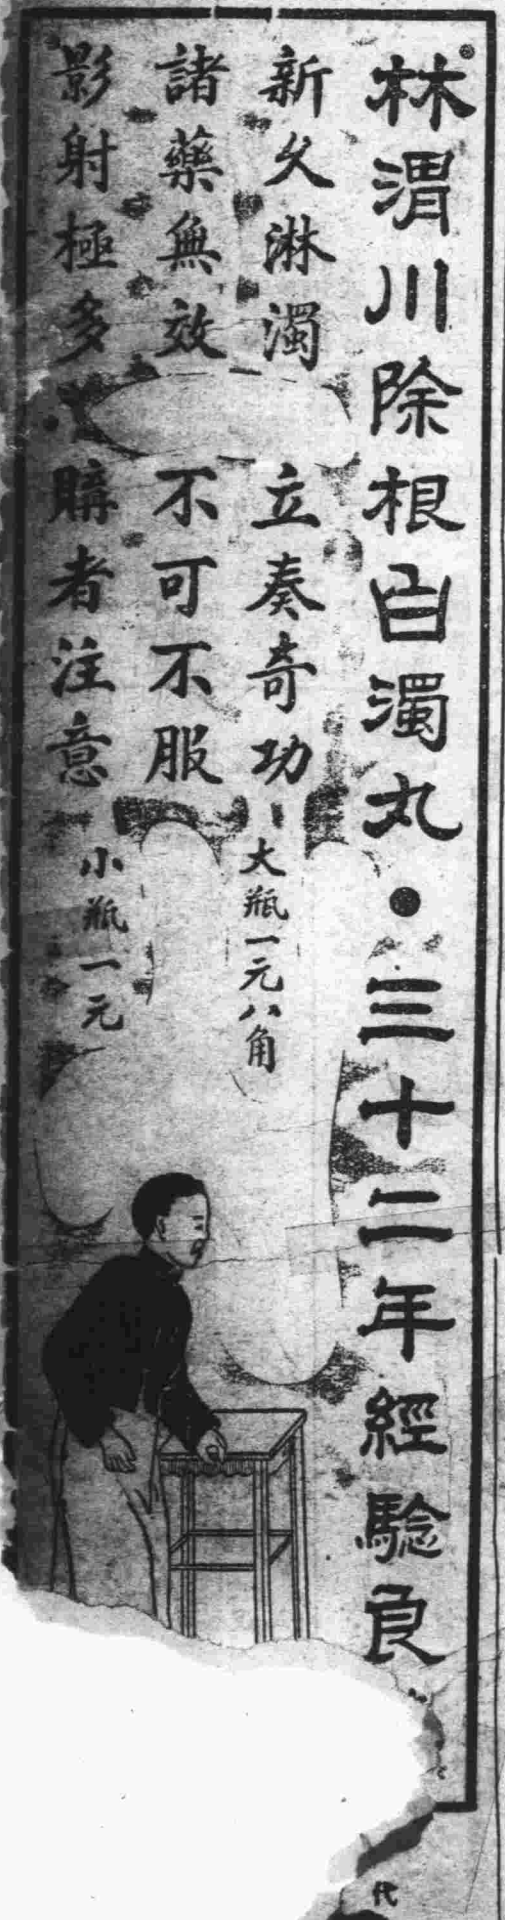 林渭川除根白濁丸●三十二年經驗良
新久淋濁 立奏奇功 大瓶一元八角
諸藥無效 不可不服
影射極多 購者注意 小瓶一元
代